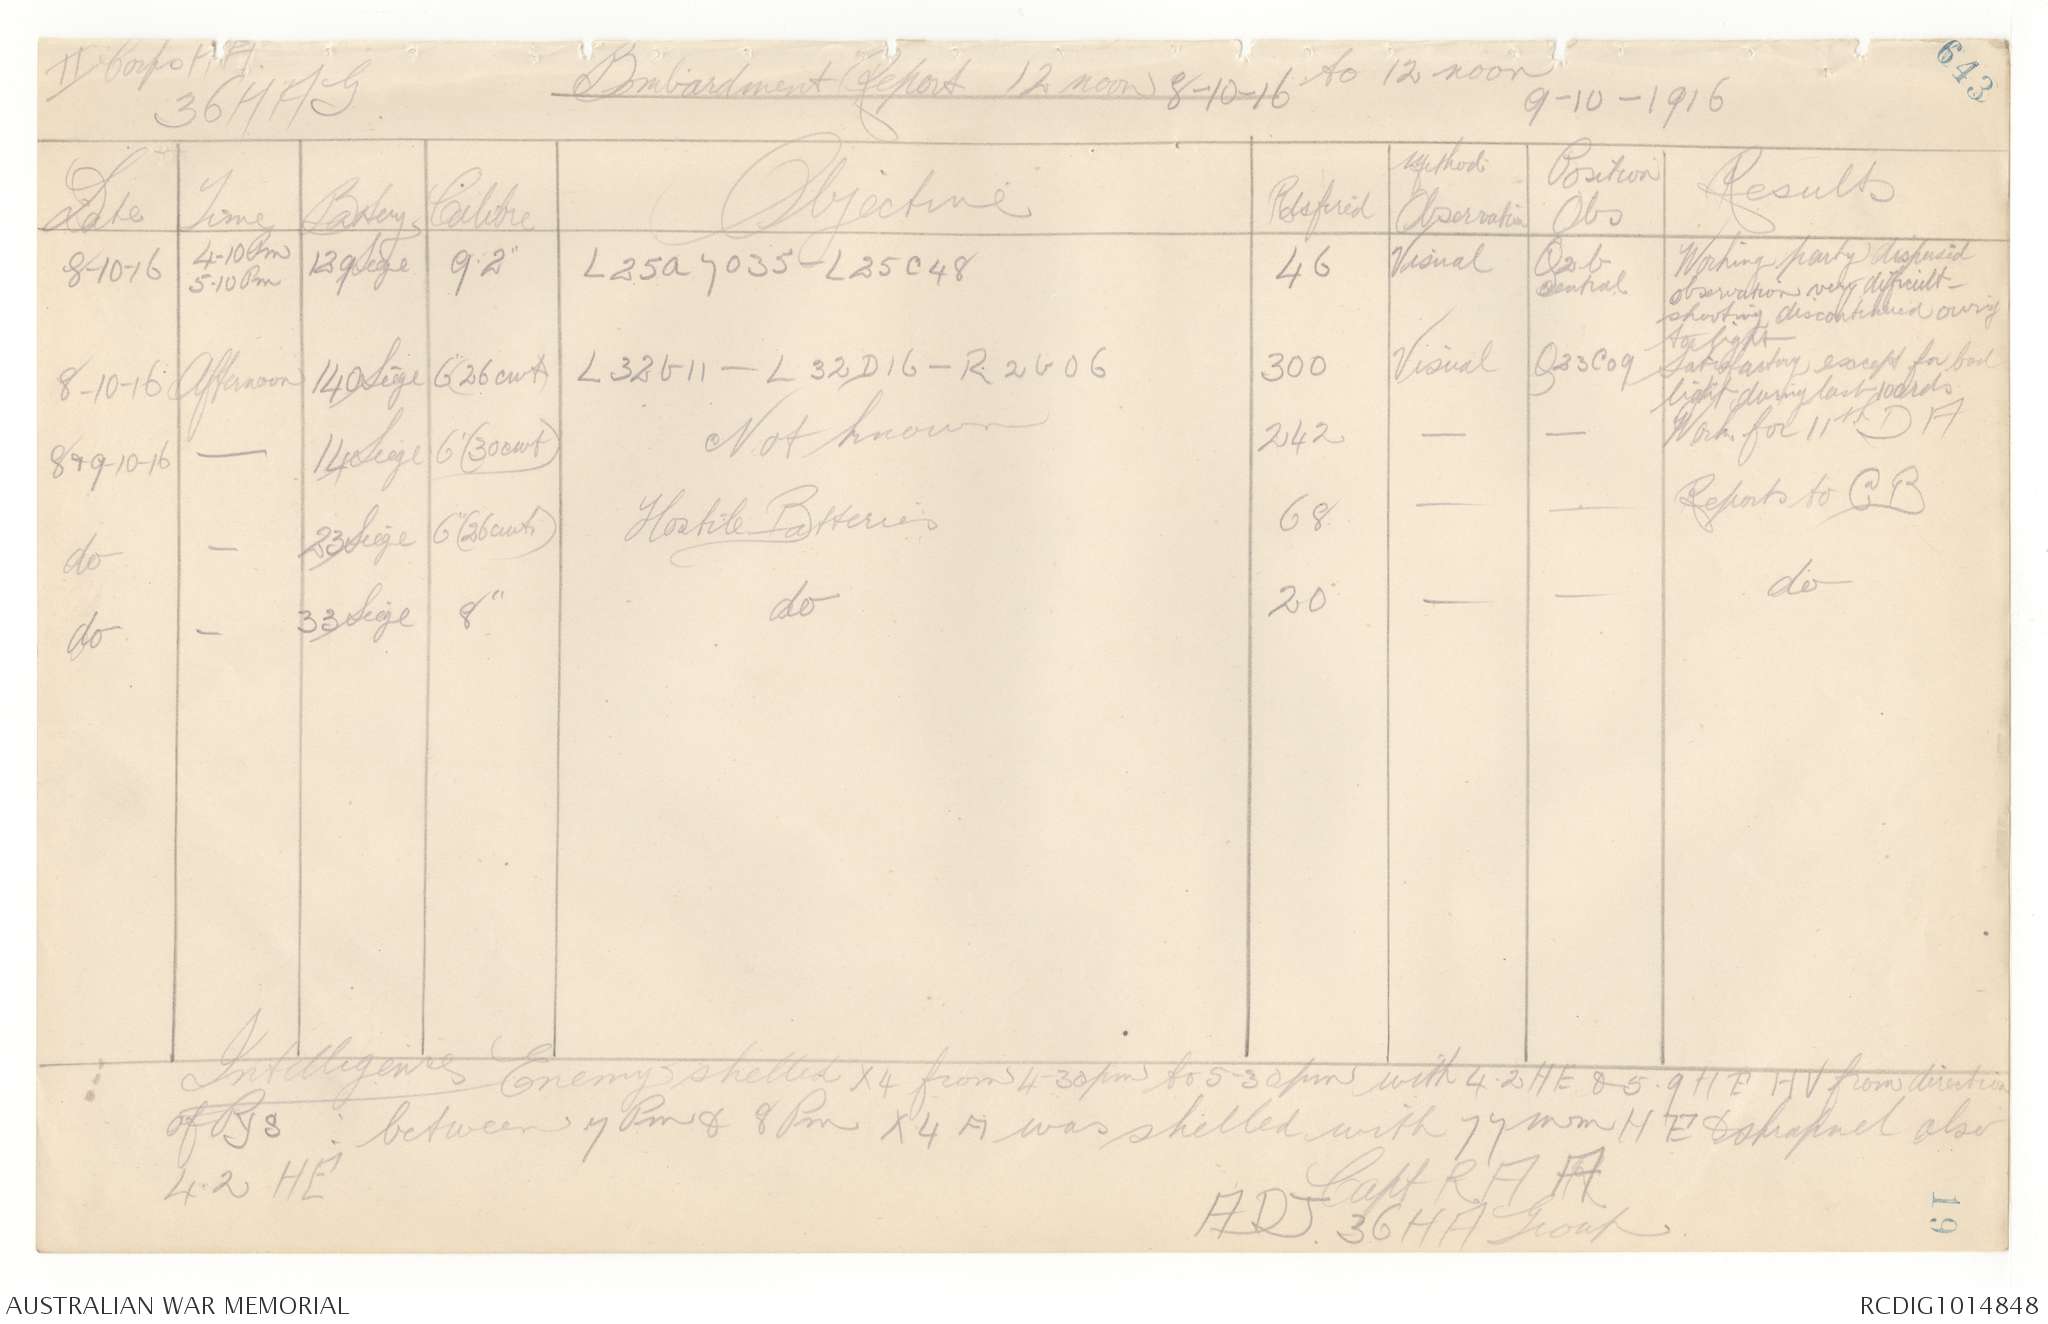 II Corps H.A.
36 H A G
Bombardment Report 12 noon 8-10-16 to 12 noon 9-10-1916
643
Date Time Battery Calibre Objective Rds fired Method Observation Position Obs Results
8-10-16 4-10 Pm 5-10 Pm 129 Siege 9.2" L25a7035-L25c48 46 Visual Q2b central Working party dispersed
observation very difficult-
shooting discontinued owing
to light
8-10-16 Afternoon 140 Siege 6"(26 cwt) L32b11 - L32D16 - R2b06 300 Visual Q23c09 Satisfactory except for bad
light during last 100 rds
8 & 9-10-16 — 14 Siege 6"(30cwt) Not known 242 — — Work for 11th D A
do — 23 Siege 6"(26cwt) Hostile Batteries 68 — — Reports to C B
do — 33 Siege 8" do 20 — — do
Intelligence Enemy shelled X4 from 4-30pm to 5-30pm with 4.2 HE & 5.9 HE HV from direction
of Pys : between 7 Pm & 8 Pm X 4 A was shelled with 77 mm H E & shrapnel also
4.2 HE
Capt R.A
ADJ. 36 H A Group
19
AUSTRALIAN WAR MEMORIAL
RCDIG1014848